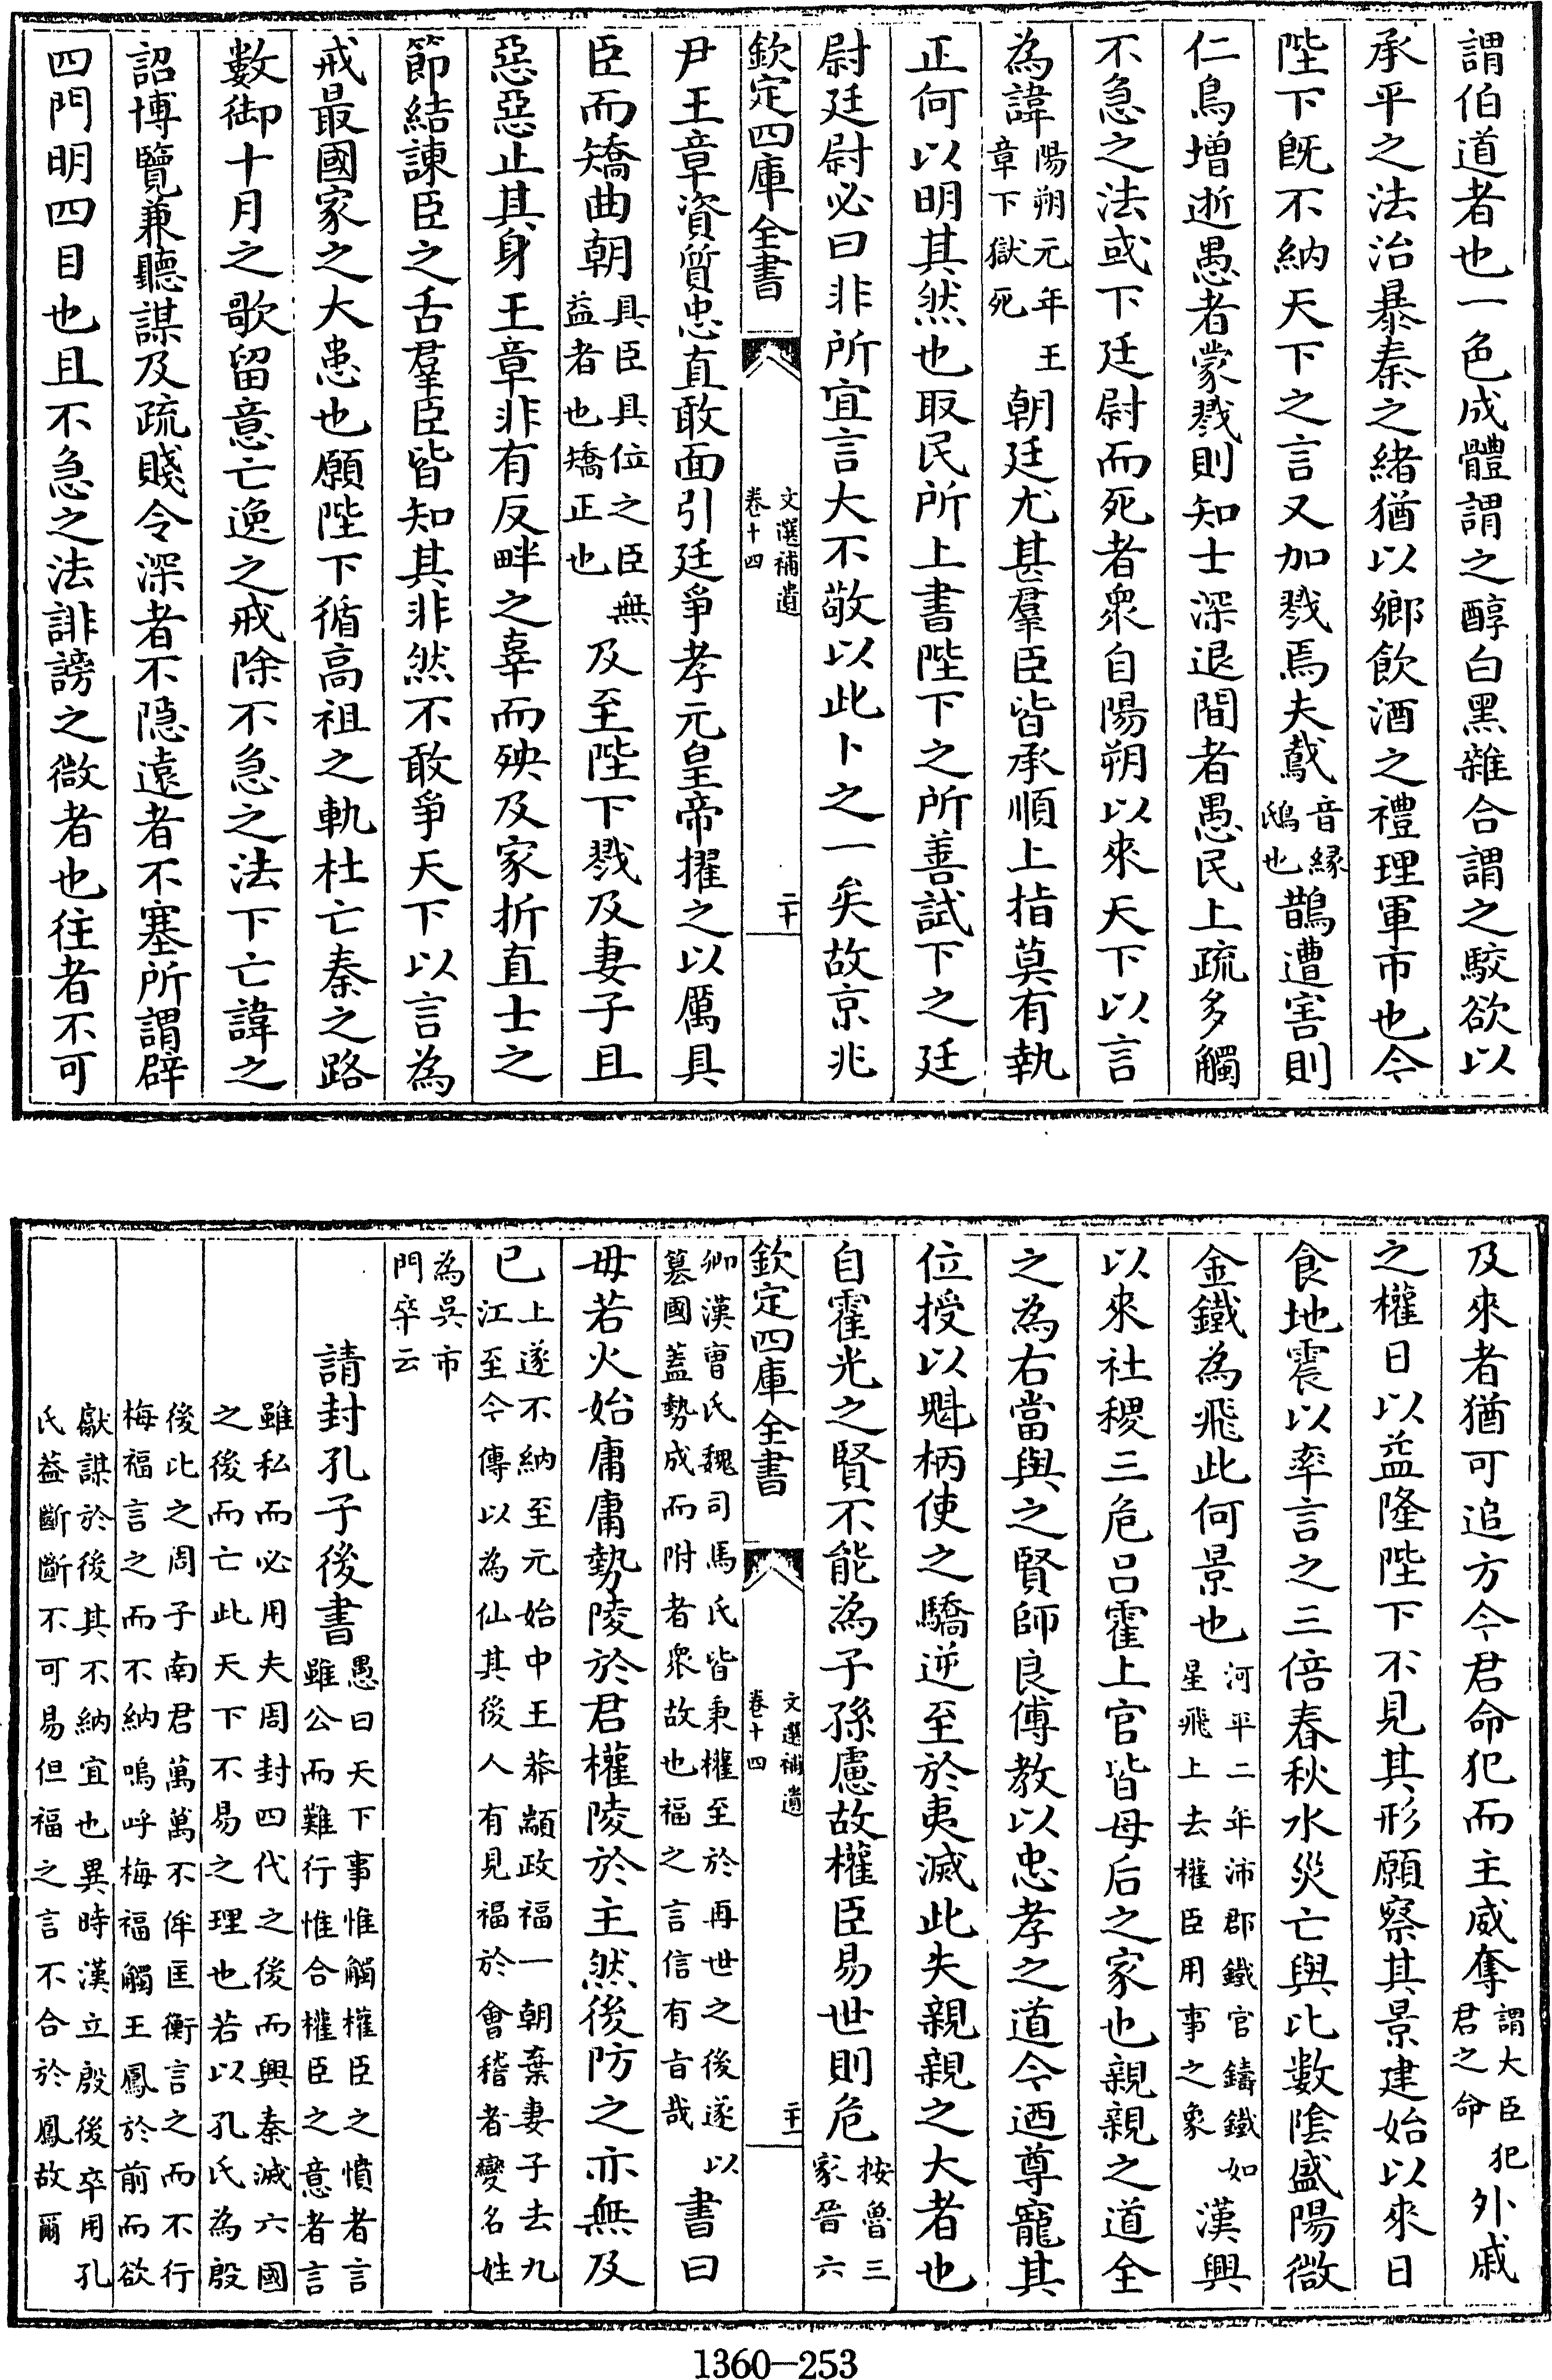 謂伯道者也一色成體謂之醇白黑雜合謂之駁欲以
承平之法治暴秦之緒猶以鄉飲酒之禮理軍市也今
陛下旣不納天下之言又加戮焉夫䳒音緣鴟也鵲遭害則
仁鳥增逝愚者蒙戮則知士深退間者愚民上疏多觸
不急之法或下廷尉而死者衆自陽朔以來天下以言
為諱陽朔元年王章下獄死朝廷尤甚羣臣皆承順上指莫有執
正何以明其然也取民所上書陛下之所善試下之廷
尉廷尉必曰非所宜言大不敬以此卜之一矣故京兆
欽定四庫全書 文選補遺卷十四 二十
尹王章資質忠直敢面引廷爭孝元皇帝擢之以厲具
臣而矯曲朝具臣具位之臣無益者也矯正也及至陛下戮及妻子且
惡惡止其身王章非有反畔之辜而殃及家折直士之
節結諫臣之舌羣臣皆知其非然不敢爭天下以言為
戒最國家之大患也願陛下循高祖之軌杜亡秦之路
數御十月之歌留意亡逸之戒除不急之法下亡諱之
詔博覽兼聽謀及疏賤令深者不隱遠者不塞所謂辟
四門明四目也且不急之法誹謗之微者也往者不可
及來者猶可追方今君命犯而主威奪謂大臣犯君之命外戚
之權日以益隆陛下不見其形願察其景建始以來日
食地震以率言之三倍春秋水災亡與比數陰盛陽微
金鐵為飛此何景也河平二年沛郡鐵官鑄鐵如星飛上去權臣用事之象漢興
以來社稷三危呂霍上官皆母后之家也親親之道全
之為右當與之賢師良傅教以忠孝之道今迺尊寵其
位授以魁柄使之驕逆至於夷滅此失親親之大者也
自霍光之賢不能為子孫慮故權臣易世則危按魯三家晉六
欽定四庫全書 文選補遺卷十四 二十一
卿漢曹氏魏司馬氏皆秉權至於再世之後遂以簒國蓋勢成而附者衆故也福之言信有旨哉書曰
毋若火始庸庸勢陵於君權陵於主然後防之亦無及
已上遂不納至元始中王莽顓政福一朝棄妻子去九江至今傳以為仙其後人有見福於會稽者變名姓
為吳市門卒云
請封孔子後書愚曰天下事惟觸權臣之憤者言雖公而難行惟合權臣之意者言
雖私而必用夫周封四代之後而興秦滅六國之後而亡此天下不易之理也若以孔氏為殷
後比之周子南君萬萬不侔匡衡言之而不行梅福言之而不納嗚呼梅福觸王鳳於前而欲
獻謀於後其不納宜也異時漢立殷後卒用孔氏益斷斷不可易但福之言不合於鳳故爾
1360—253